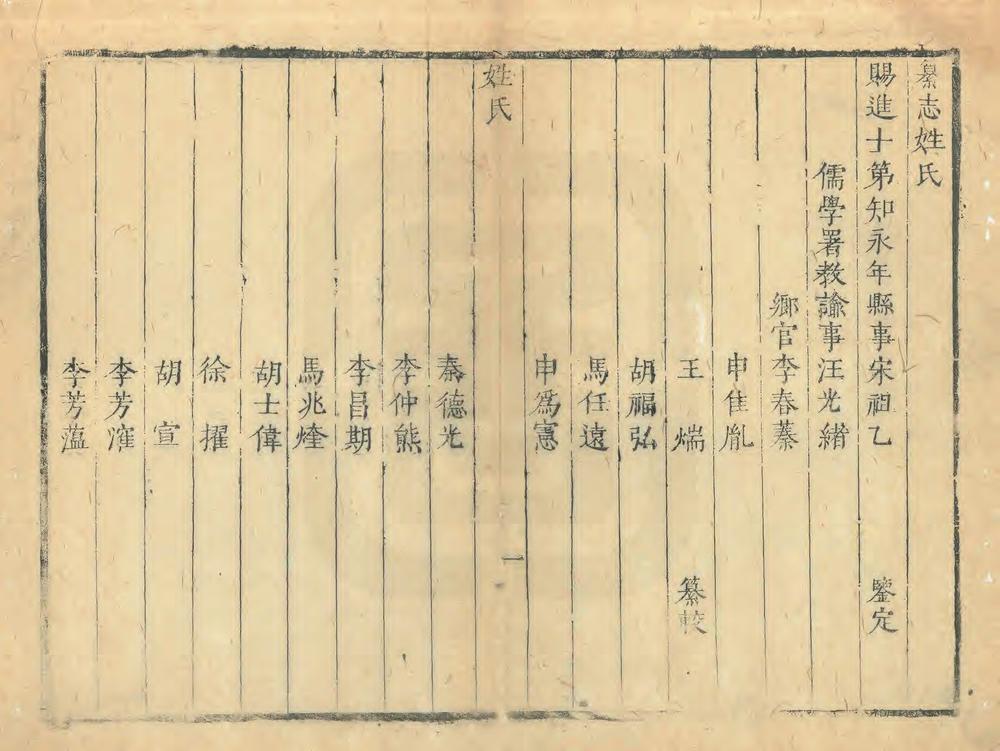 纂志姓氏
賜進士第知永年縣事宋祖乙 鑒定
儒學署教諭事汪光緒
鄉官李春蓁
申佳胤
王 㷟 纂較
胡福弘
馬任遠
申為憲
姓氏 一
秦德光
李仲熊
李昌期
馬兆煃
胡士偉
徐擢
胡宣
李芳漼
李芳蕰